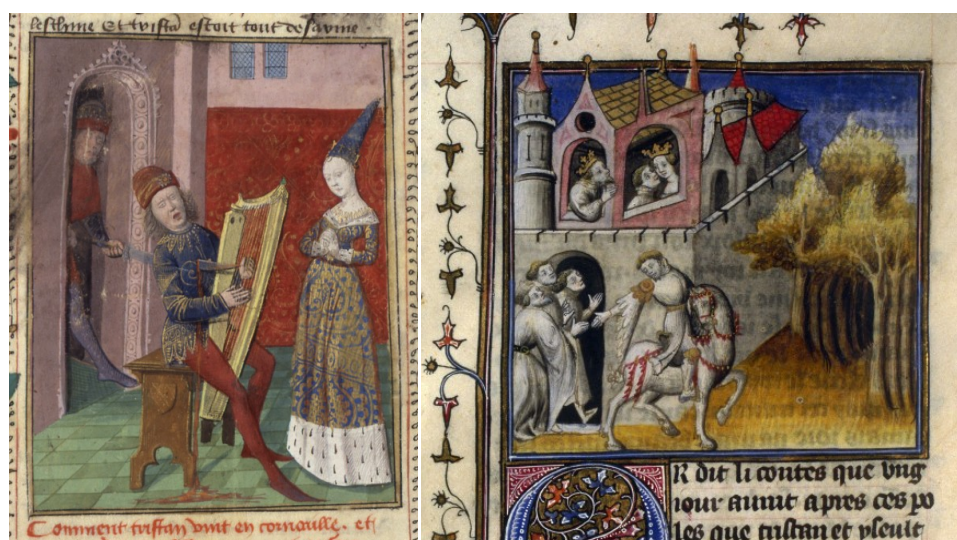 et tristan estoit tout de sa vine
Comment tristan vint en cornoaille. et
R dit li contes que vng
iour auint apres ces po
les que tristan et yseult